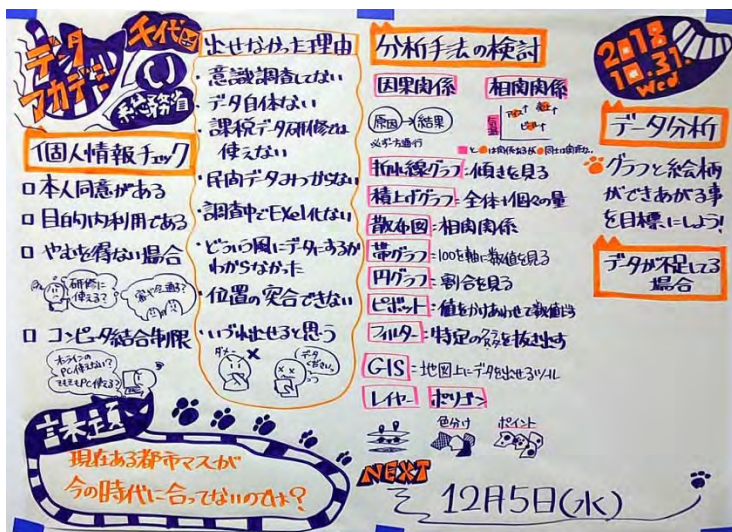 データ
アカデミー
千代田
総務省
個人情報チェック
□ 本人同意がある
□ 目的内利用である
□ やむを得ない場合
研修に
使える?
□ コンピュータ結合制限
オンラインの
PC使えない?
そもそもPC使える?
出せなかった理由
・意識調査してない
・データ自体ない
・課税データ研修では
使えない
・民間データみつからない
・調査中でExcel化ない
・どういう風にデータにするか
わからなかった
・位置の突合できない
・いづれ出せると思う
ダメ
データ
ください
分析手法の検討
因果関係
相関関係
原因→結果
※一方通行
アイス↑
ビール↑
折れ線グラフ:傾きを見る
積上げグラフ:全体+個々の量
散布図:相関関係
帯グラフ:100を軸に数値を見る
円グラフ:割合を見る
ピボット:値をかけあわせて数値だす
フィルター:特定のクラスを抜き出す
GIS=地図上にデータを出せるツール
レイヤー
ポリゴン
色分け
ポイント
2018
10.31.
Wed
データ分析
グラフと絵柄
ができあがる事
を目標にしよう!
データが不足してる
場合
課題
現在ある都市マスが
今の時代に合ってないのでは?
NEXT
12月5日(水)